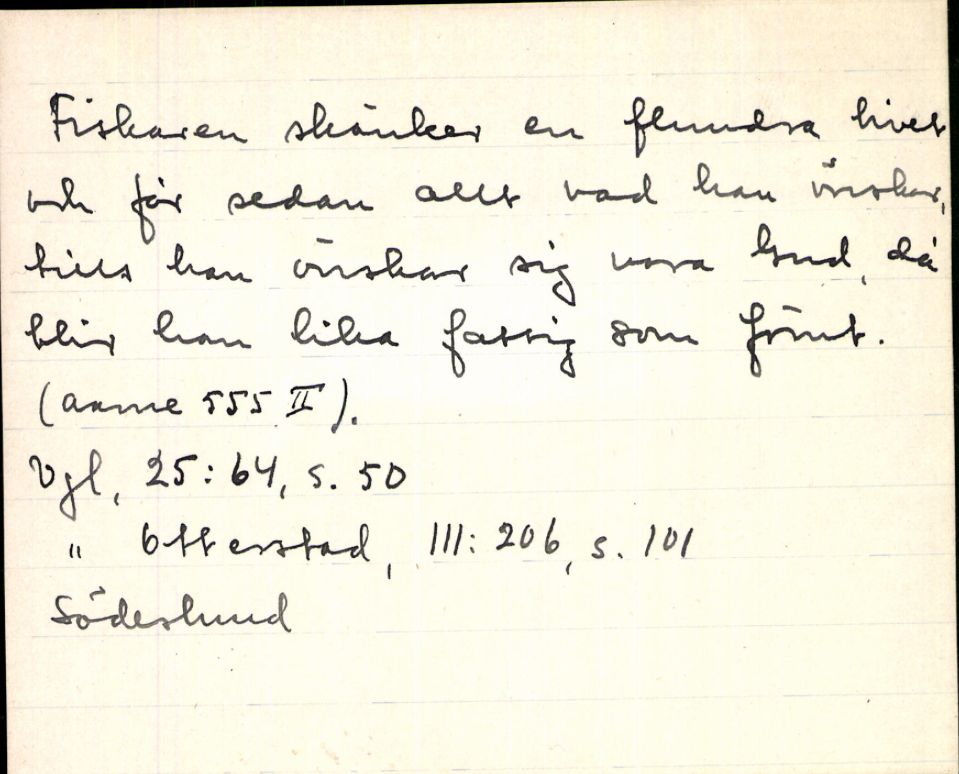 Fiskaren skänker en flundra livet
och får sedan allt vad han önskar,
tills han önskar sig vara Gud, då
blir han lika fattig som förut.
(Aarne 555 II).
Vgl, 25:64, s. 50
" Otterstad, III: 206, s. 101
Söderlund